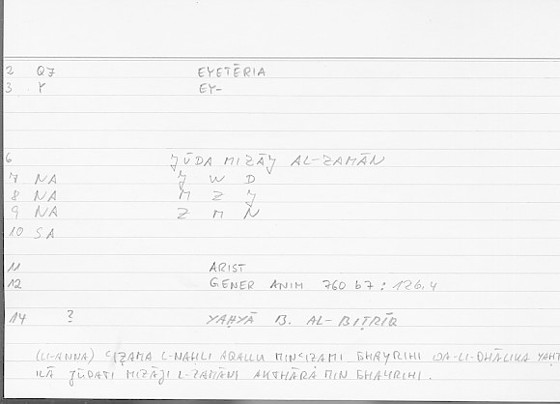 2 QJ EYETĒRIA
3 Y EY-
6 ǦŪDA MIZĀǦ AL-ZAMĀN
7 NA Ǧ W D
8 NA M Z Ǧ
9 NA Z M N
10 SA
11 ARIST
12 GENER ANIM 760 b7 : 126,4
14 ? YAḤYĀ B. AL-BIṬRĪQ
(LI-ANNA) L-NAḤLI AQALLU MIN GHAYRIHI WA-LI-DHĀLIKA
ILĀ ǦŪDATI MIZĀǦI L-ZAMĀNI AKTHARA MIN GHAYRIHI.